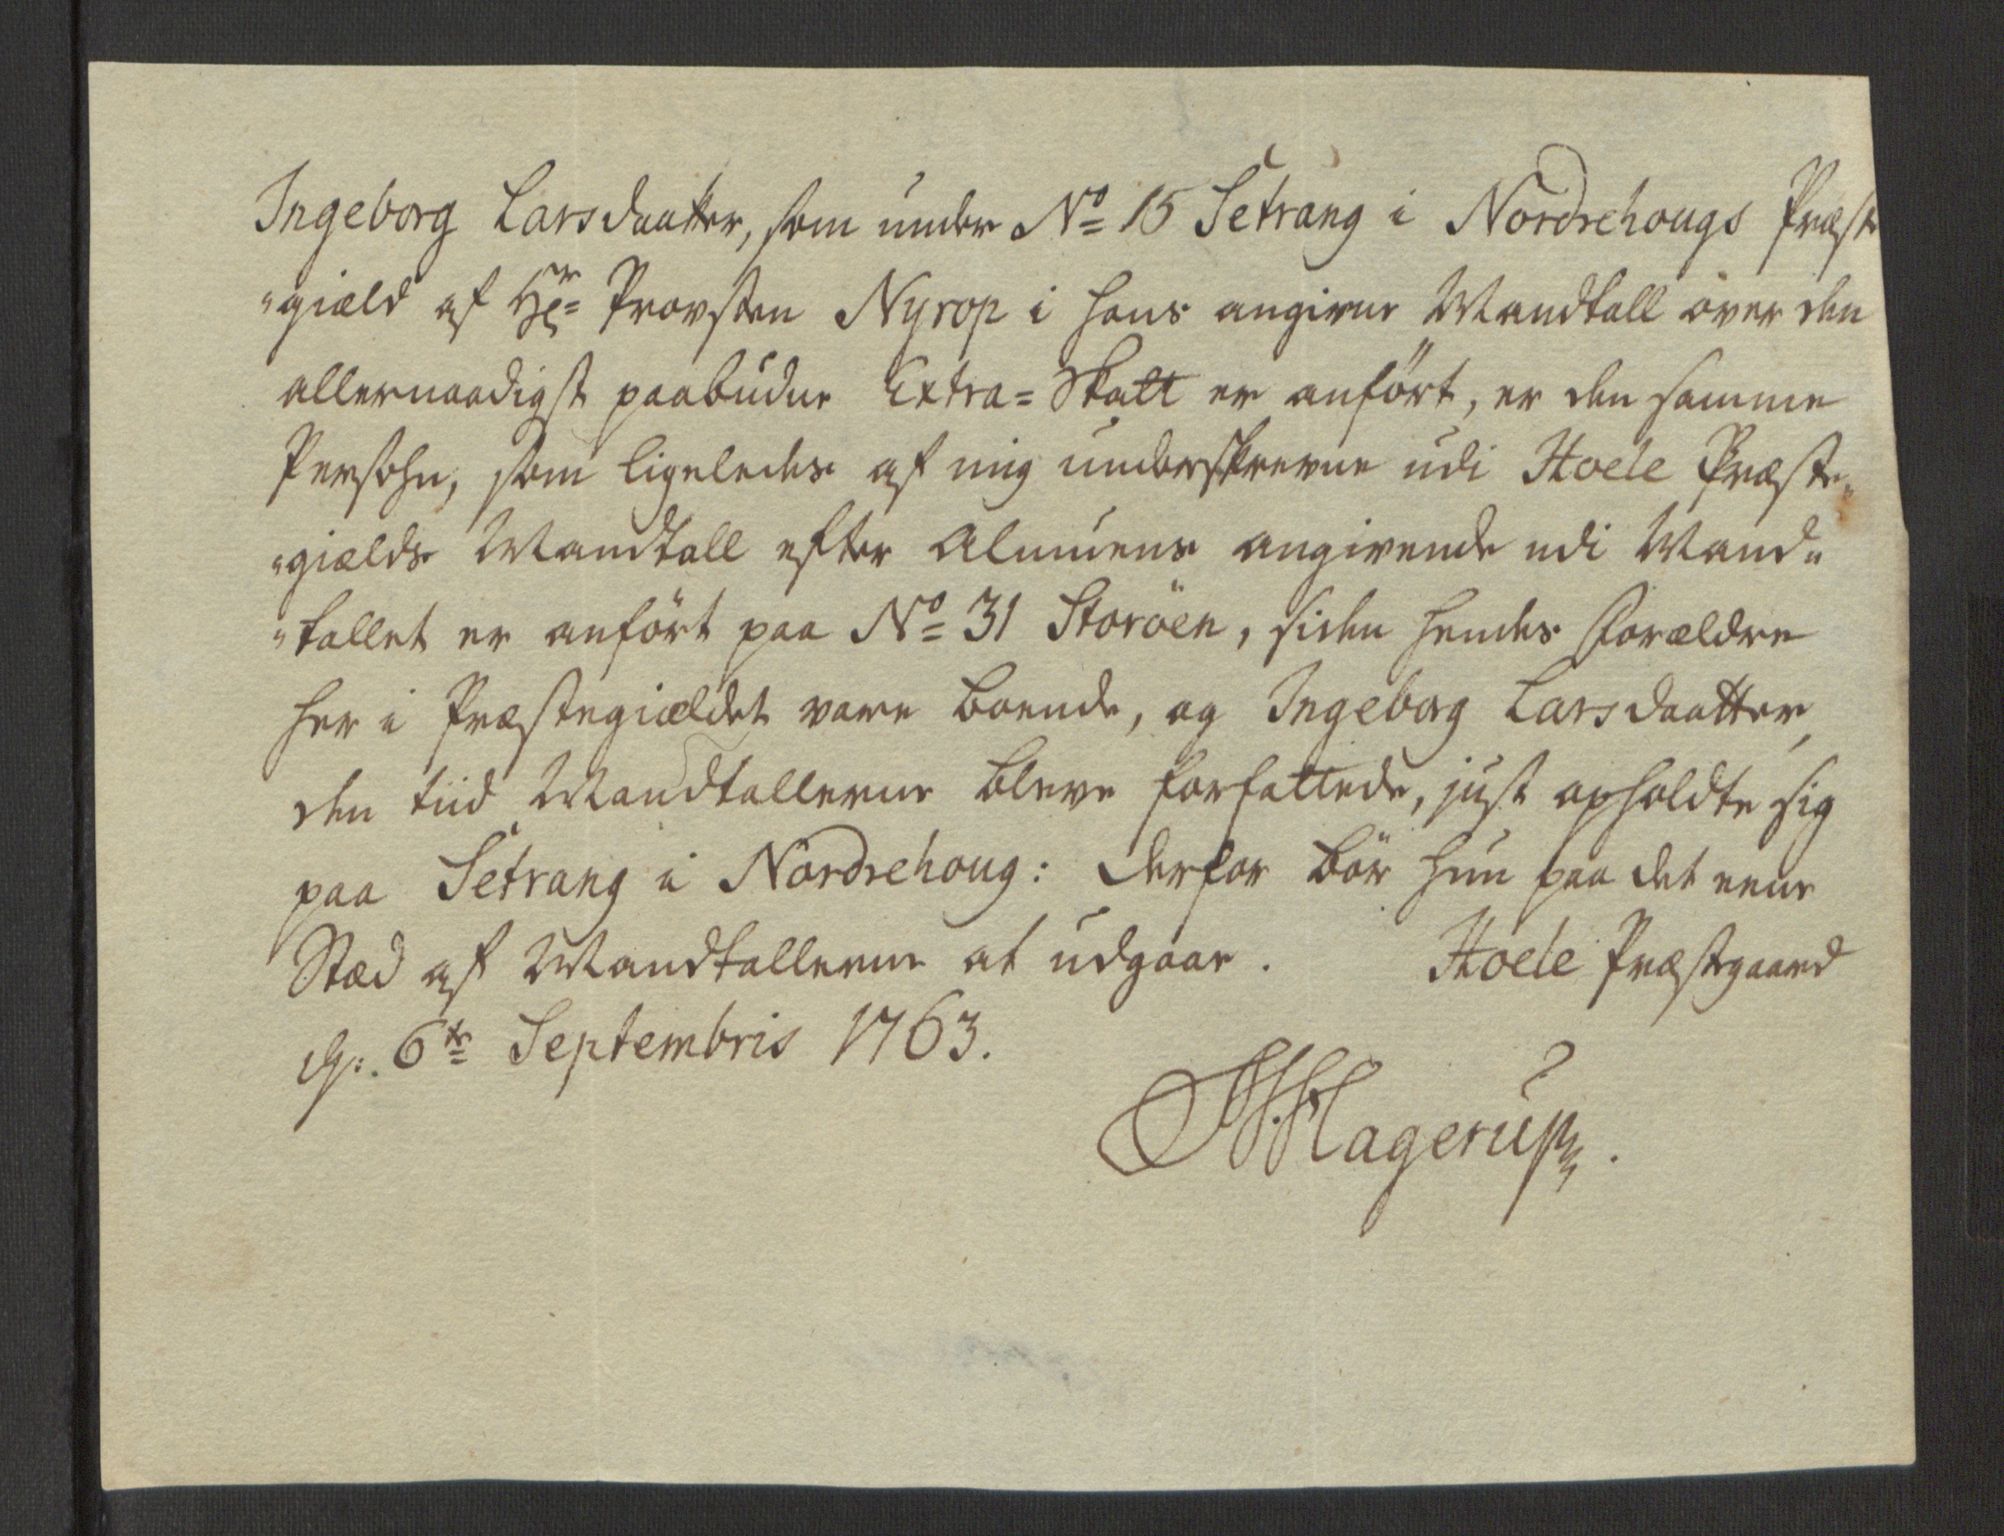 Ingeborg Larsdaatter, som under No 15 Setrang i Nordrehougs Præste
"giæld af Hr= Provsten Nyrop i hans angivne Mandtall över den
allernaadigst paabudne Extra=Skatt er anfört, er den samme
Persohn, som ligeledes af mig underskrevne udi Hoele Præste"
"gields Mandtall efter Almuens angivende udi Mand"
"tallet er anfört paa No 31 Storöen, siden hendes Forældre
her i Præstegiældet vare boende, og Ingeborg Larsdaatter,
den tiid Mandtallerne bleve forfattede, just opholdte sig
paa Setrang i Nordrehoug: Derfor bör hun paa det eene
Stæd af Mandtallerne at udgaae. Hoele Præstgaard
d: 6te Septembris 1763.
Hagerup.